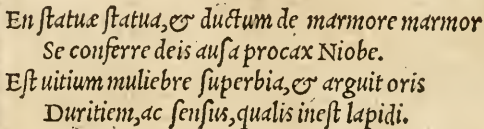 En ſtatuæ ſtatua, & ductum de marmore marmor
Se conferre deis auſa procax Niobe.
Eſt uitium muliebre ſuperbia, & arguit oris
Duritiem, ac ſenſus, qualis ineſt lapidi.